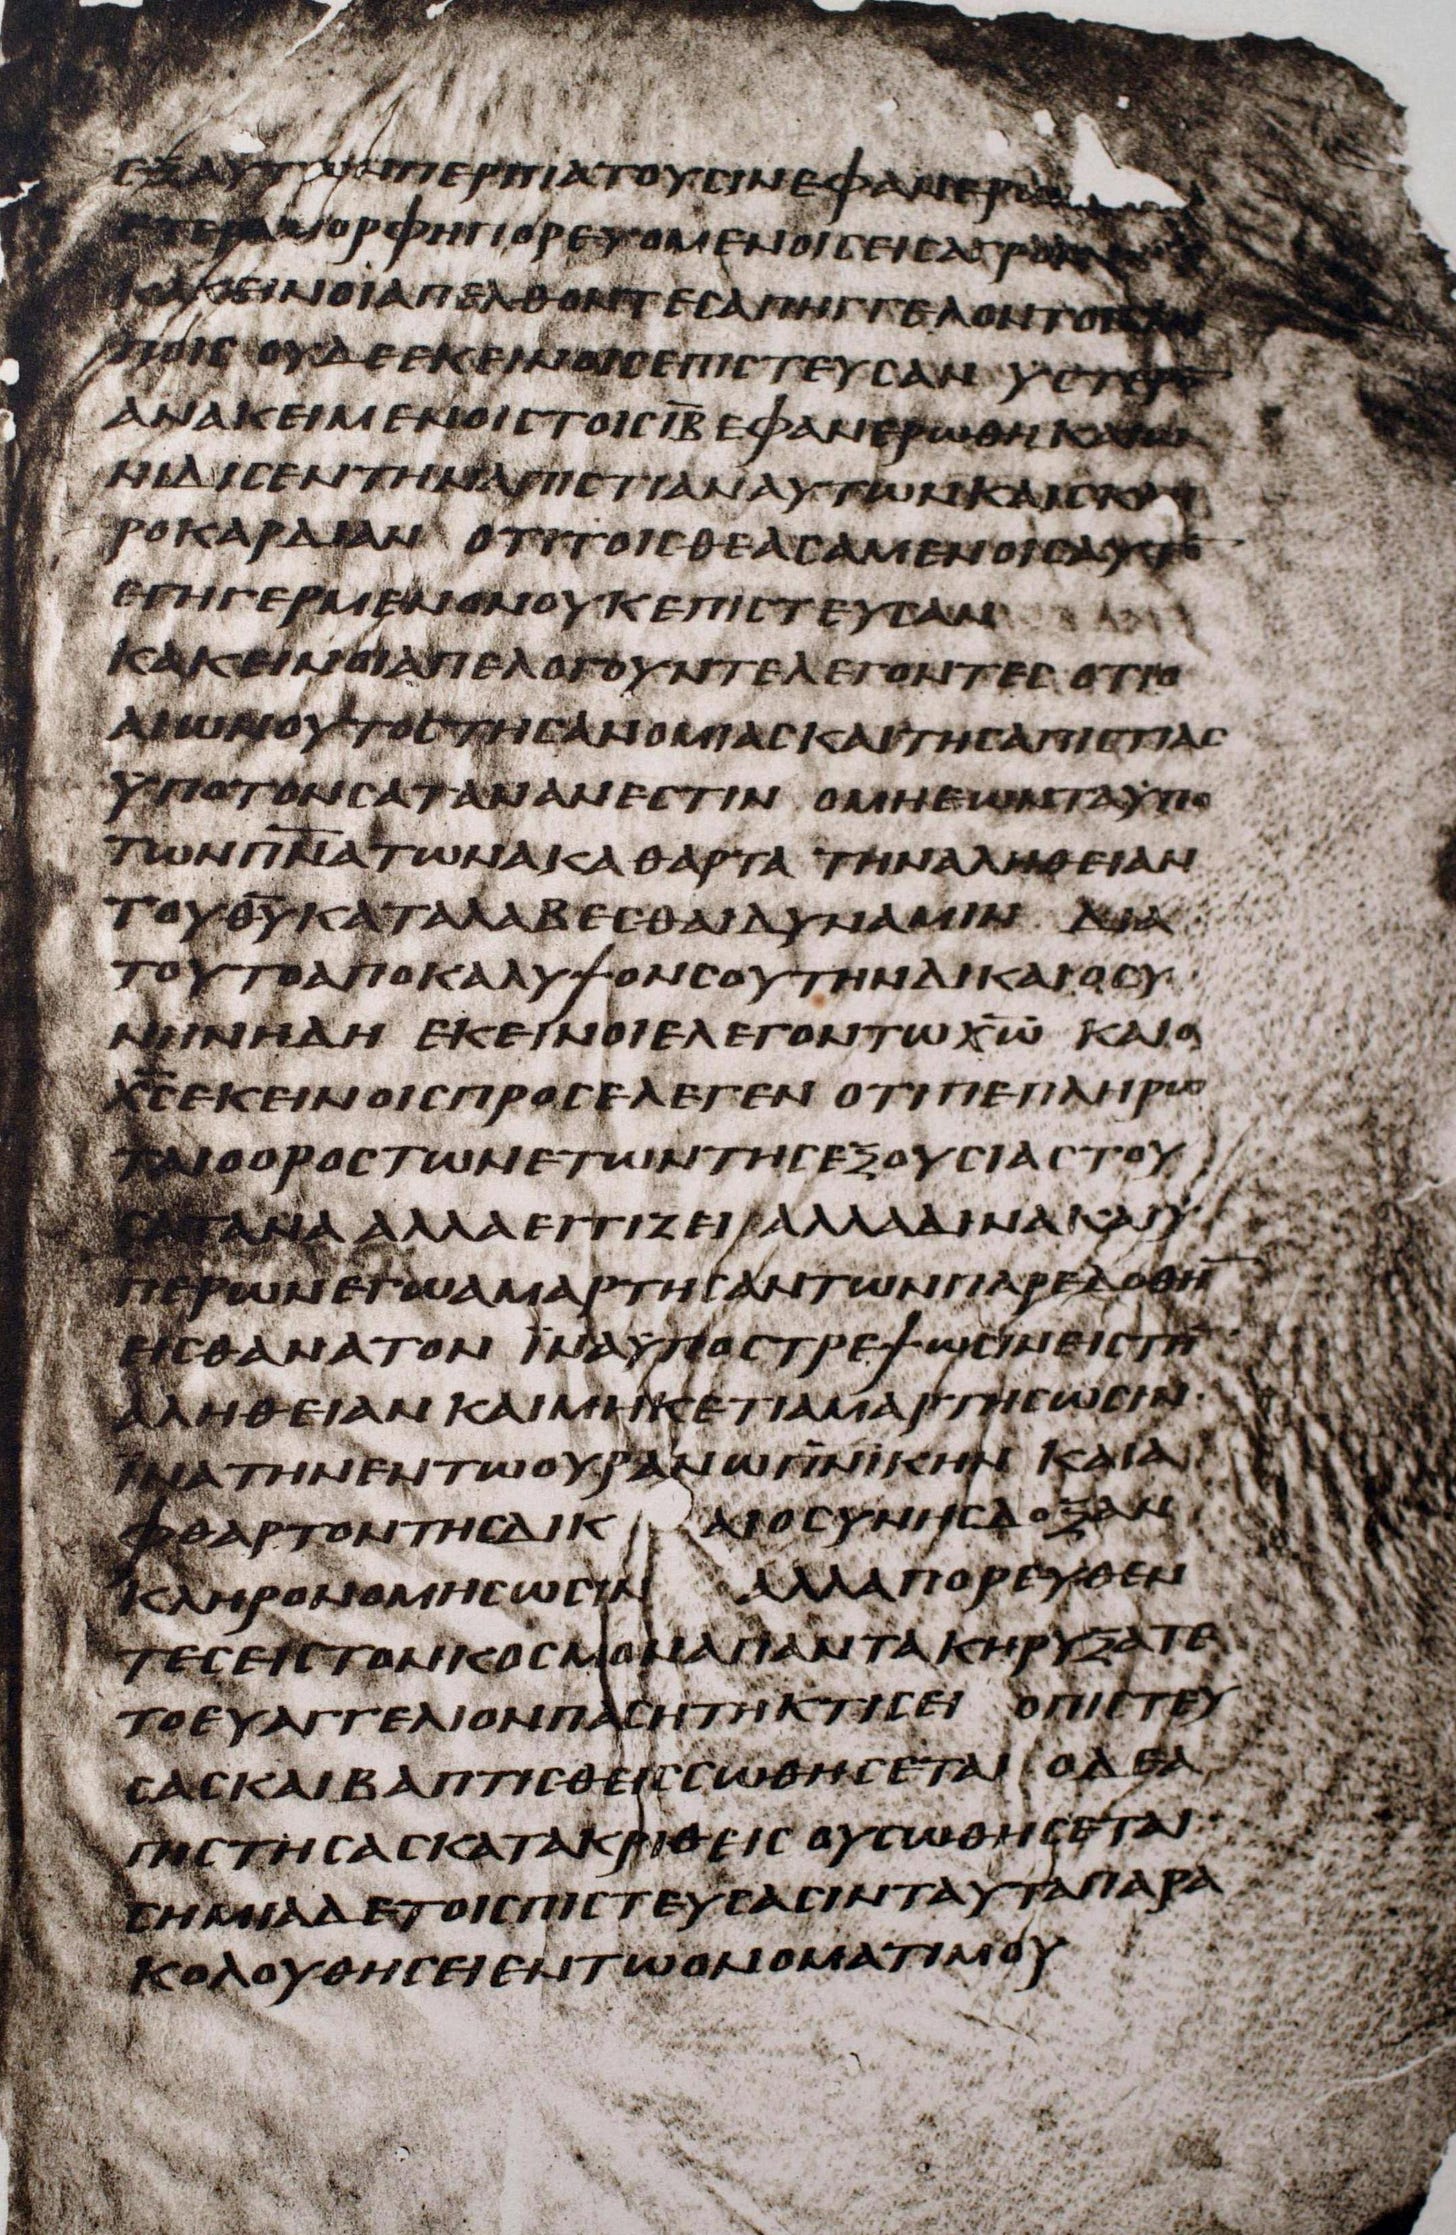 ΕΞΑΥΤΩΝΠΕΡΙΠΑΤΟΥCΙΝΕΦΑΝΕΡΩ
ΕΤΕΡΑΜΟΡΦΗΠΟΡΕΥΟΜΕΝΟΙCΕΙCΑΓΡΟΝ
ΚΑΚΕΙΝΟΙΑΠΕΛΘΟΝΤΕCΑΠΗΓΓΕΛΟΝΤΟΙC
ΠΟΙC ΟΥΔΕΕΚΕΙΝΟΙCΕΠΙCΤΕΥCΑΝ ΥCΤΕΡΟ̅
ΑΝΑΚΕΙΜΕΝΟΙCΤΟΙCΙ̅Β̅ΕΦΑΝΕΡΩΘΗΚΑΙΩ
ΝΙΔΙCΕΝΤΗΝΑΠΙCΤΙΑΝΑΥΤΩΝΚΑΙCΚΛΗ
ΡΟΚΑΡΔΙΑΝ ΟΤΙΤΟΙCΘΕΑCΑΜΕΝΟΙCΑΥΤΟ̅
ΕΓΗΓΕΡΜΕΝΟΝΟΥΚΕΠΙCΤΕΥCΑΝ
ΚΑΚΕΙΝΟΙΑΠΕΛΟΓΟΥΝΤΕΛΕΓΟΝΤΕC ΟΤΙΟ
ΑΙΩΝΟΥΤΟCΤΗCΑΝΟΜΙΑCΚΑΙΤΗCΑΠΙCΤΙΑC
ΥΠΟΤΟΝCΑΤΑΝΑΝΕCΤΙΝ ΟΜΗΕΩΝΤΑΫΠΟ
ΤΩΝΠ̅Ν̅Α̅ΤΩΝΑΚΑΘΑΡΤΑ ΤΗΝΑΛΗΘΕΙΑΝ
ΤΟΥΘ̅Υ̅ΚΑΤΑΛΑΒΕCΘΑΙΔΥΝΑΜΙΝ ΔΙΑ
ΤΟΥΤΟΑΠΟΚΑΛΥΨΟΝCΟΥΤΗΝΔΙΚΑΙΟCΥ
ΝΗΝΗΔΗ ΕΚΕΙΝΟΙΕΛΕΓΟΝΤΩΧ̅Ω̅ ΚΑΙΟ
Χ̅C̅ΕΚΕΙΝΟΙCΠΡΟCΕΛΕΓΕΝ ΟΤΙΠΕΠΛΗΡΩ
ΤΑΙΟΟΡΟCΤΩΝΕΤΩΝΤΗCΕΞΟΥCΙΑCΤΟΥ
CΑΤΑΝΑΑΛΛΑΕΓΓΙΖΕΙ ΑΛΛΑΔΙΝΑΚΑΙΥ
ΠΕΡΩΝΕΓΩΑΜΑΡΤΗCΑΝΤΩΝΠΑΡΕΔΟΘΗ̅
ΕΙCΘΑΝΑΤΟΝ ΪΝΑΫΠΟCΤΡΕΨΩCΙΝΕΙCΤΗ̅
ΑΛΗΘΕΙΑΝΚΑΙΜΗΚΕΤΙΑΜΑΡΤΗCΩCΙΝ
ΪΝΑΤΗΝΕΝΤΩΟΥΡΑΝΩΠ̅Ν̅ΙΚΗΝ ΚΑΙΑ
ΦΘΑΡΤΟΝΤΗCΔΙΚ ΑΙΟCΥΝΗCΔΟΞΑΝ
ΚΛΗΡΟΝΟΜΗCΩCΙΝ ΑΛΛΑΠΟΡΕΥΘΕΝ
ΤΕCΕΙCΤΟΝΚΟCΜΟΝΑΠΑΝΤΑΚΗΡΥΞΑΤΕ
ΤΟΕΥΑΓΓΕΛΙΟΝΠΑCΗΤΗΚΤΙCΕΙ ΟΠΙCΤΕΥ
CΑCΚΑΙΒΑΠΤΙCΘΕΙCCΩΘΗCΕΤΑΙ ΟΔΕΑ
ΠΙCΤΗCΑCΚΑΤΑΚΡΙΘΕΙC ΟΥCΩΘΗCΕΤΑΙ
CΗΜΙΑΔΕΤΟΙCΠΙCΤΕΥCΑCΙΝΤΑΥΤΑΠΑΡΑ
ΚΟΛΟΥΘΗCΕΙΕΝΤΩΟΝΟΜΑΤΙΜΟΥ